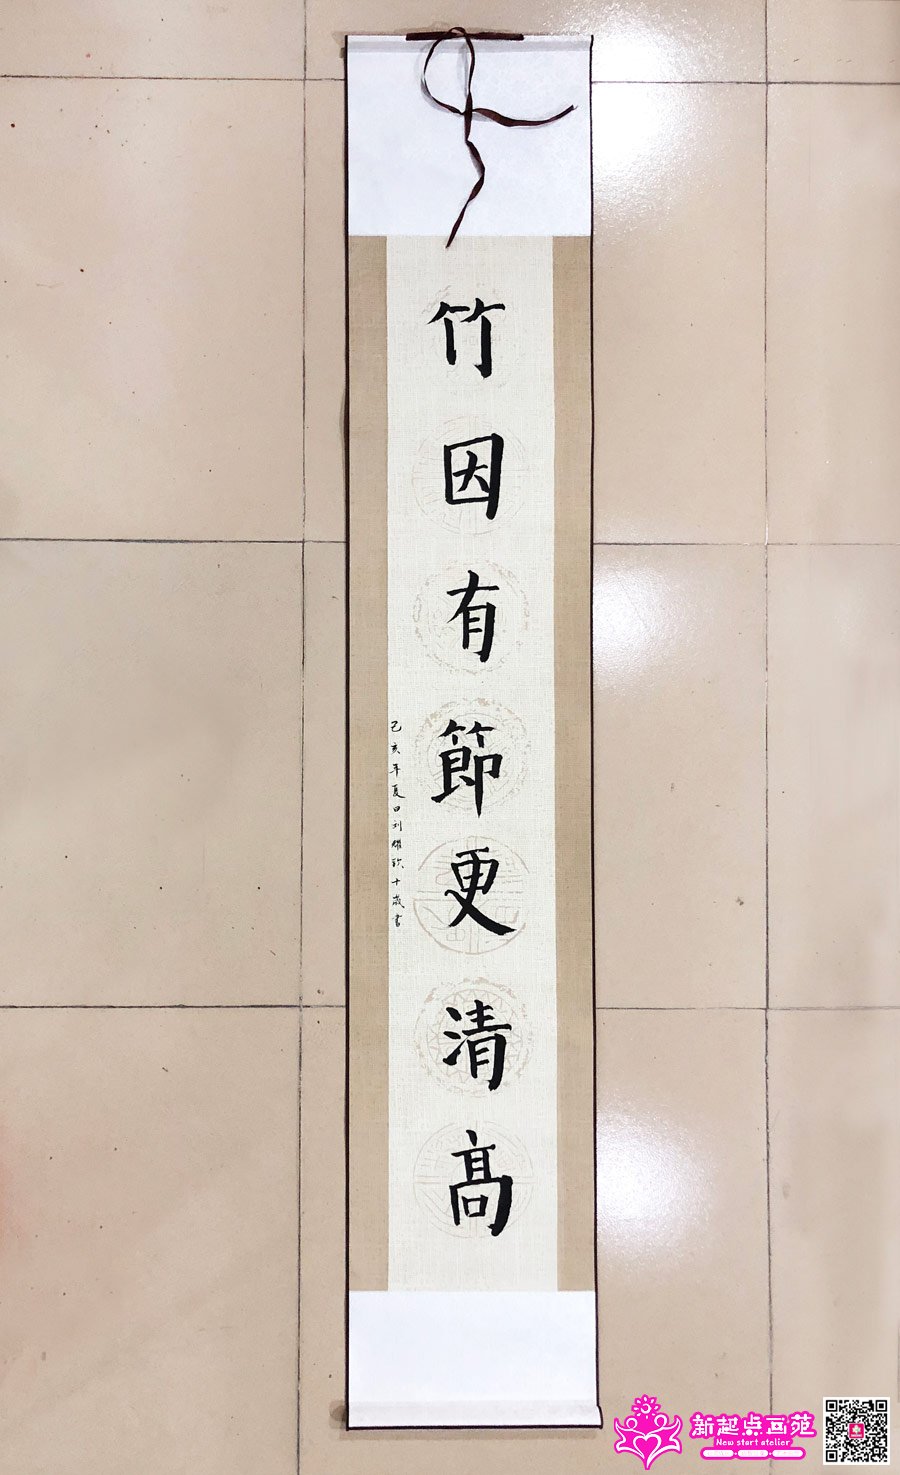 竹因有節更清高
己亥年夏日刘耀欣十歲書
新起点画苑
New start atelier